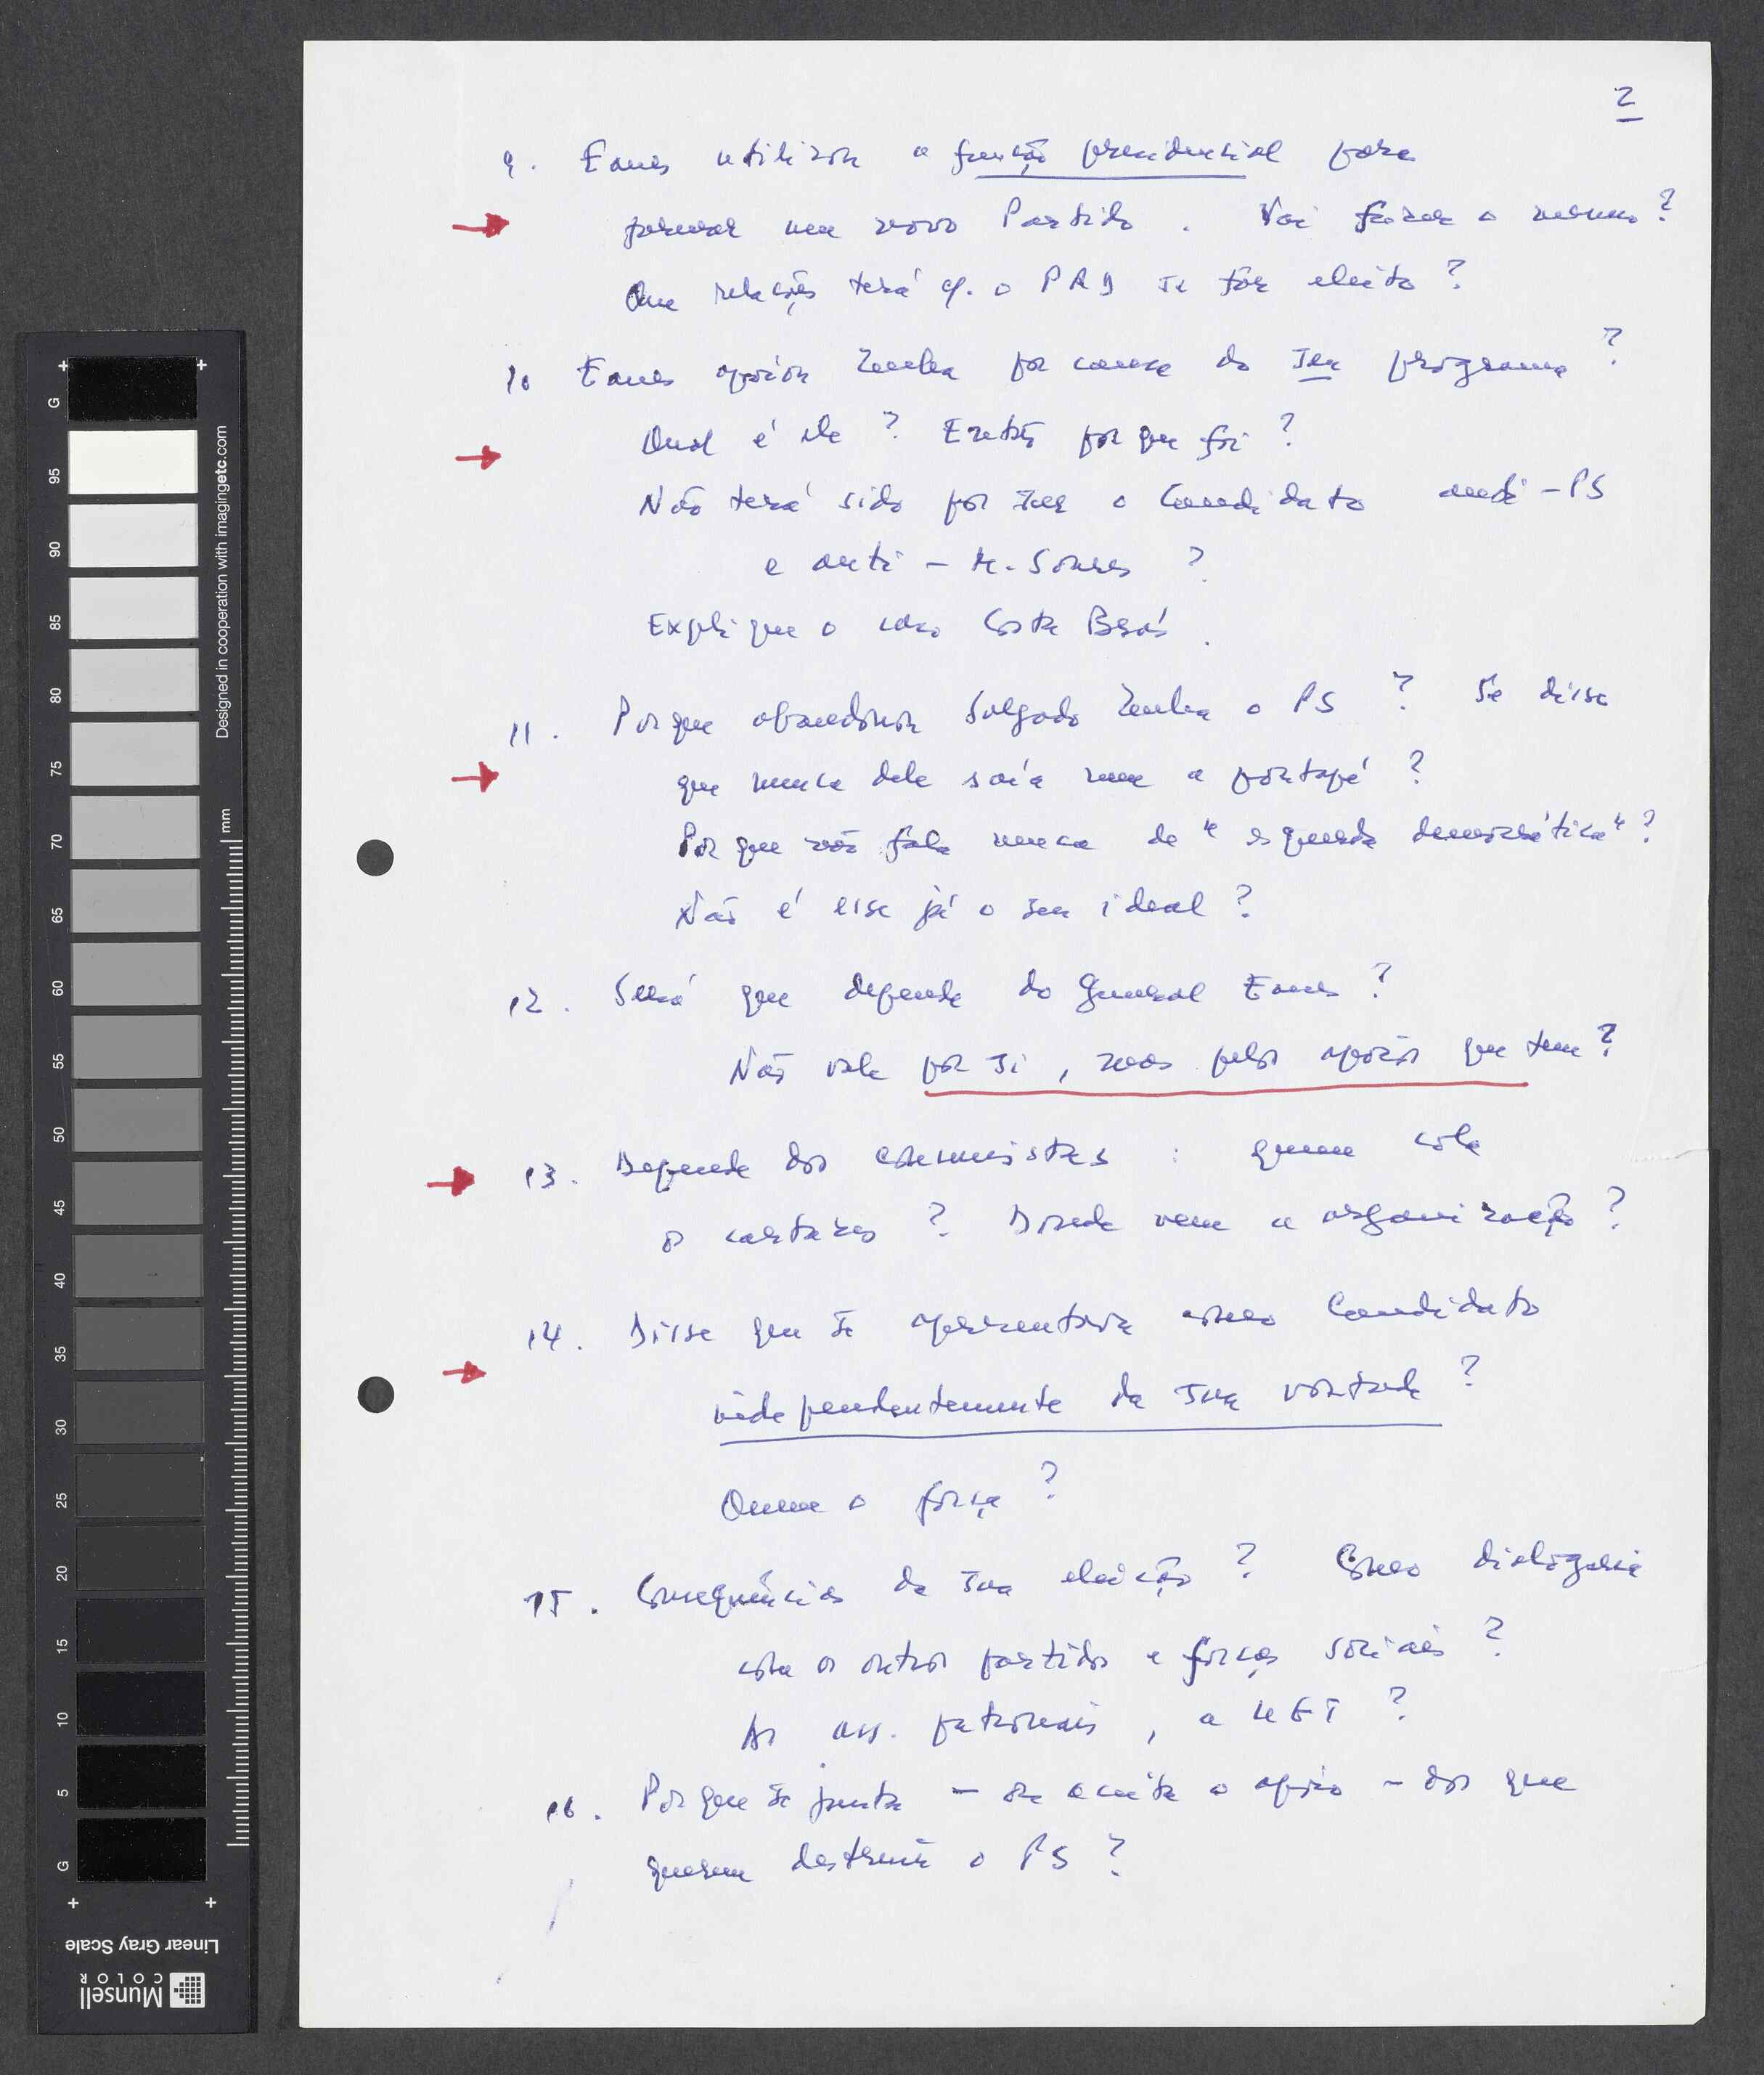 2
9. Eanes utilizou a função presidencial para
formar um novo Partido. Vai fazer o mesmo?
Que relações terá c/. o PRD se fôr eleito?
10 Eanes apoiou Zenha por causa do seu programa?
Qual é ele? Então porque foi?
Não terá sido por ser o Candidato anti-PS
e anti-M. Soares?
Explique o caso Costa Brás.
11. Porque abandonou Salgado Zenha o PS? Se disse
que nunca dele saía nem a pontapé?
Por que não fala nunca de "esquerda democrática"?
Não é esse já o seu ideal?
12. Será que depende do General Eanes?
Não vale por si, mas pelos apoios que tem?
13. Depende dos comunistas: quem cola
os cartazes? Donde vem a organização?
14. Disse que se apresentava como Candidato
independentemente da sua vontade?
Quem o força?
15. Consequências da sua eleição? Como dialogaria
com os outros partidos e forças sociais?
As ass. patronais, a UGT?
16. Porque se junta - ou aceita o apoio - dos que
querem destruir o PS?
G
95
90
85
80
75
70
65
60
55
50
45
40
35
30
25
20
15
10
5
G
mm
Designed in cooperation with imagingetc.com
Linear Gray Scale
Munsell
COLOR